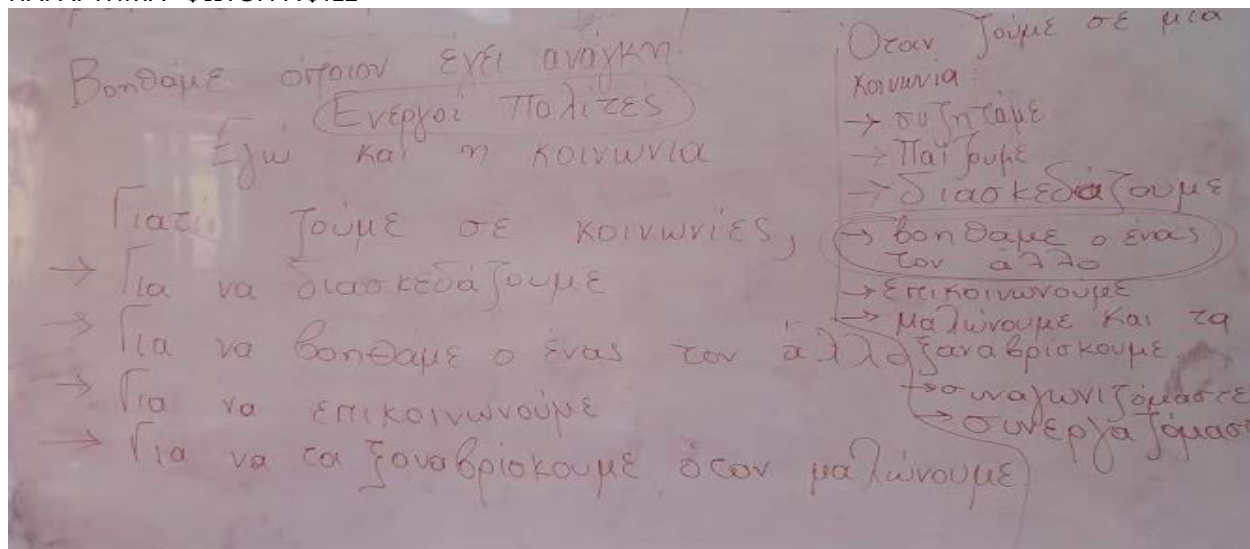 Βοηθάμε όποιον έχει ανάγκη!
Ενεργοί Πολίτες
Εγώ και η κοινωνία
Γιατί ζούμε σε κοινωνίες;
→ Για να διασκεδάζουμε
→ Για να βοηθάμε ο ένας τον άλλο
→ Για να επικοινωνούμε
→ Για να τα ξαναβρίσκουμε όταν μαλώνουμε
Όταν ζούμε σε μια
κοινωνία:
→ συζητάμε
→ Παίζουμε
→ διασκεδάζουμε
→ βοηθάμε ο ένας
τον άλλο
→ επικοινωνούμε
→ μαλώνουμε και τα
ξαναβρίσκουμε
→ συναγωνιζόμαστε
→ συνεργαζόμαστ